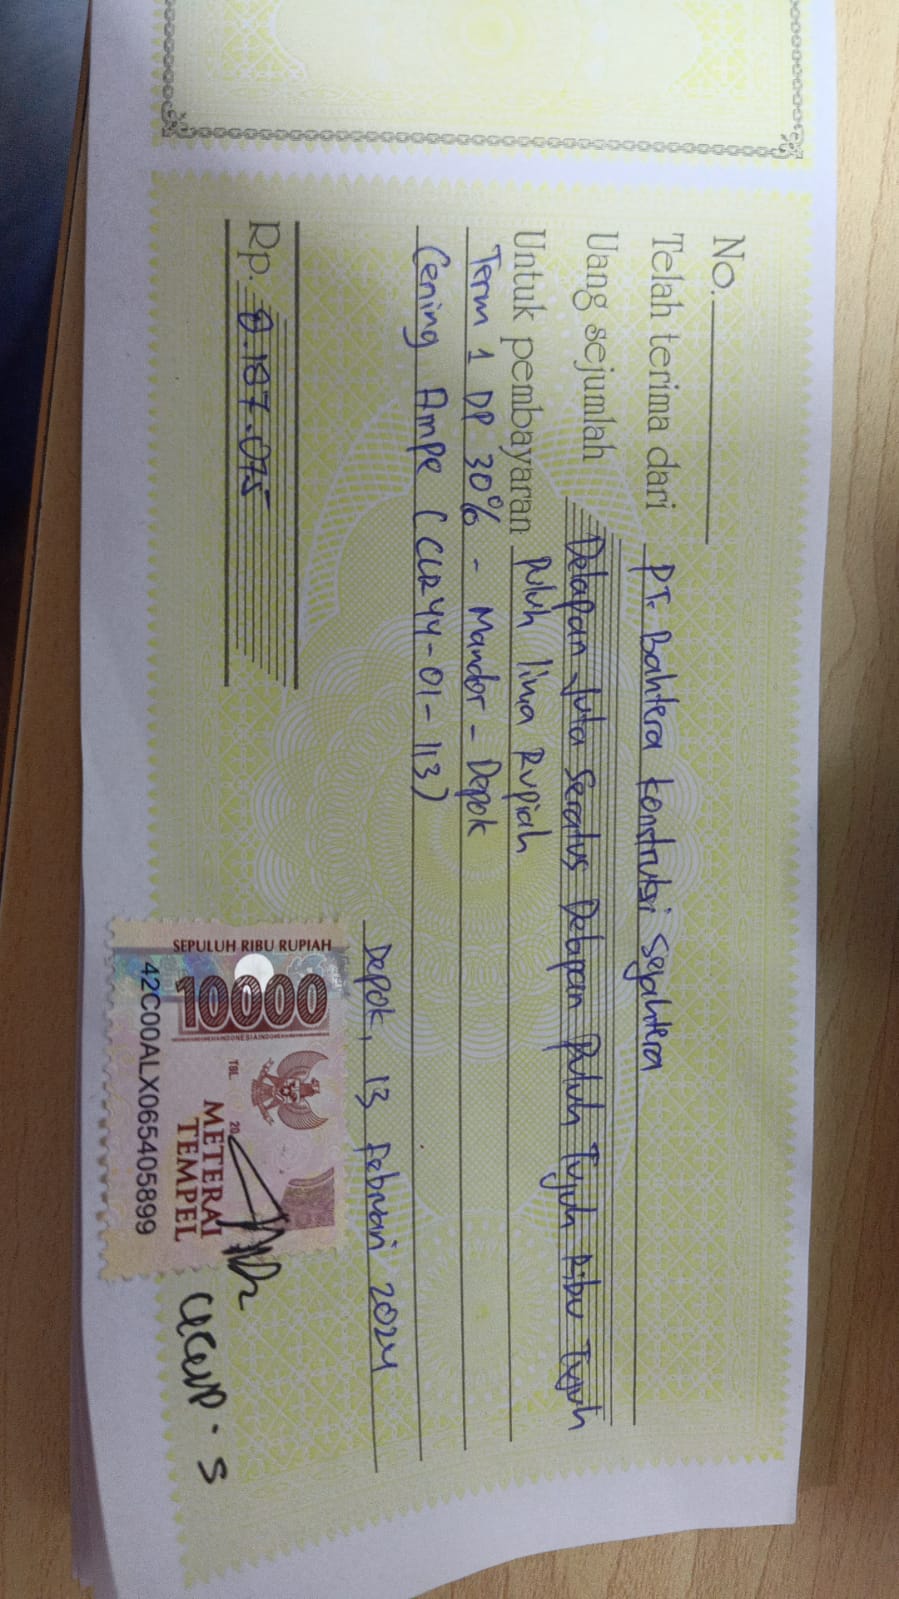 No.
Telah terima dari PT. Bahtera Konstruksi Sejahtera
Uang sejumlah Delapan Juta Seratus Delapan Puluh Tujuh Ribu Tujuh
Untuk pembayaran Puluh lima Rupiah
Term 1 DP 30% - Mandor - Depok
Cening Ampe (CLR44-01-113)
Depok, 13 Februari 2024
Rp. 8.187.075
SEPULUH RIBU RUPIAH
10000
TBL. 20
METERAI
TEMPEL
42C00ALX065405899